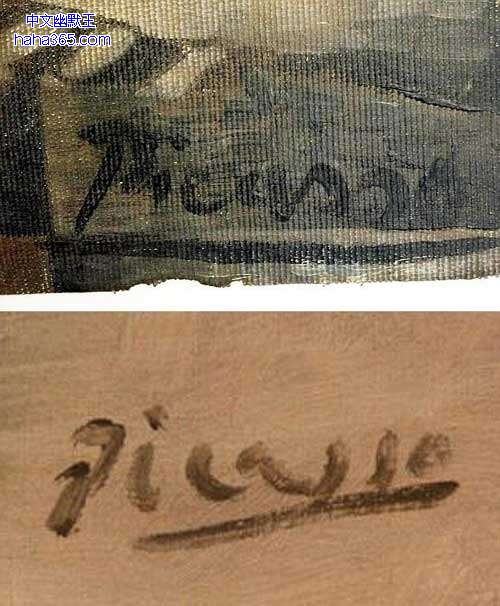 中文幽默王
haha365.com
Picasso
Picasso